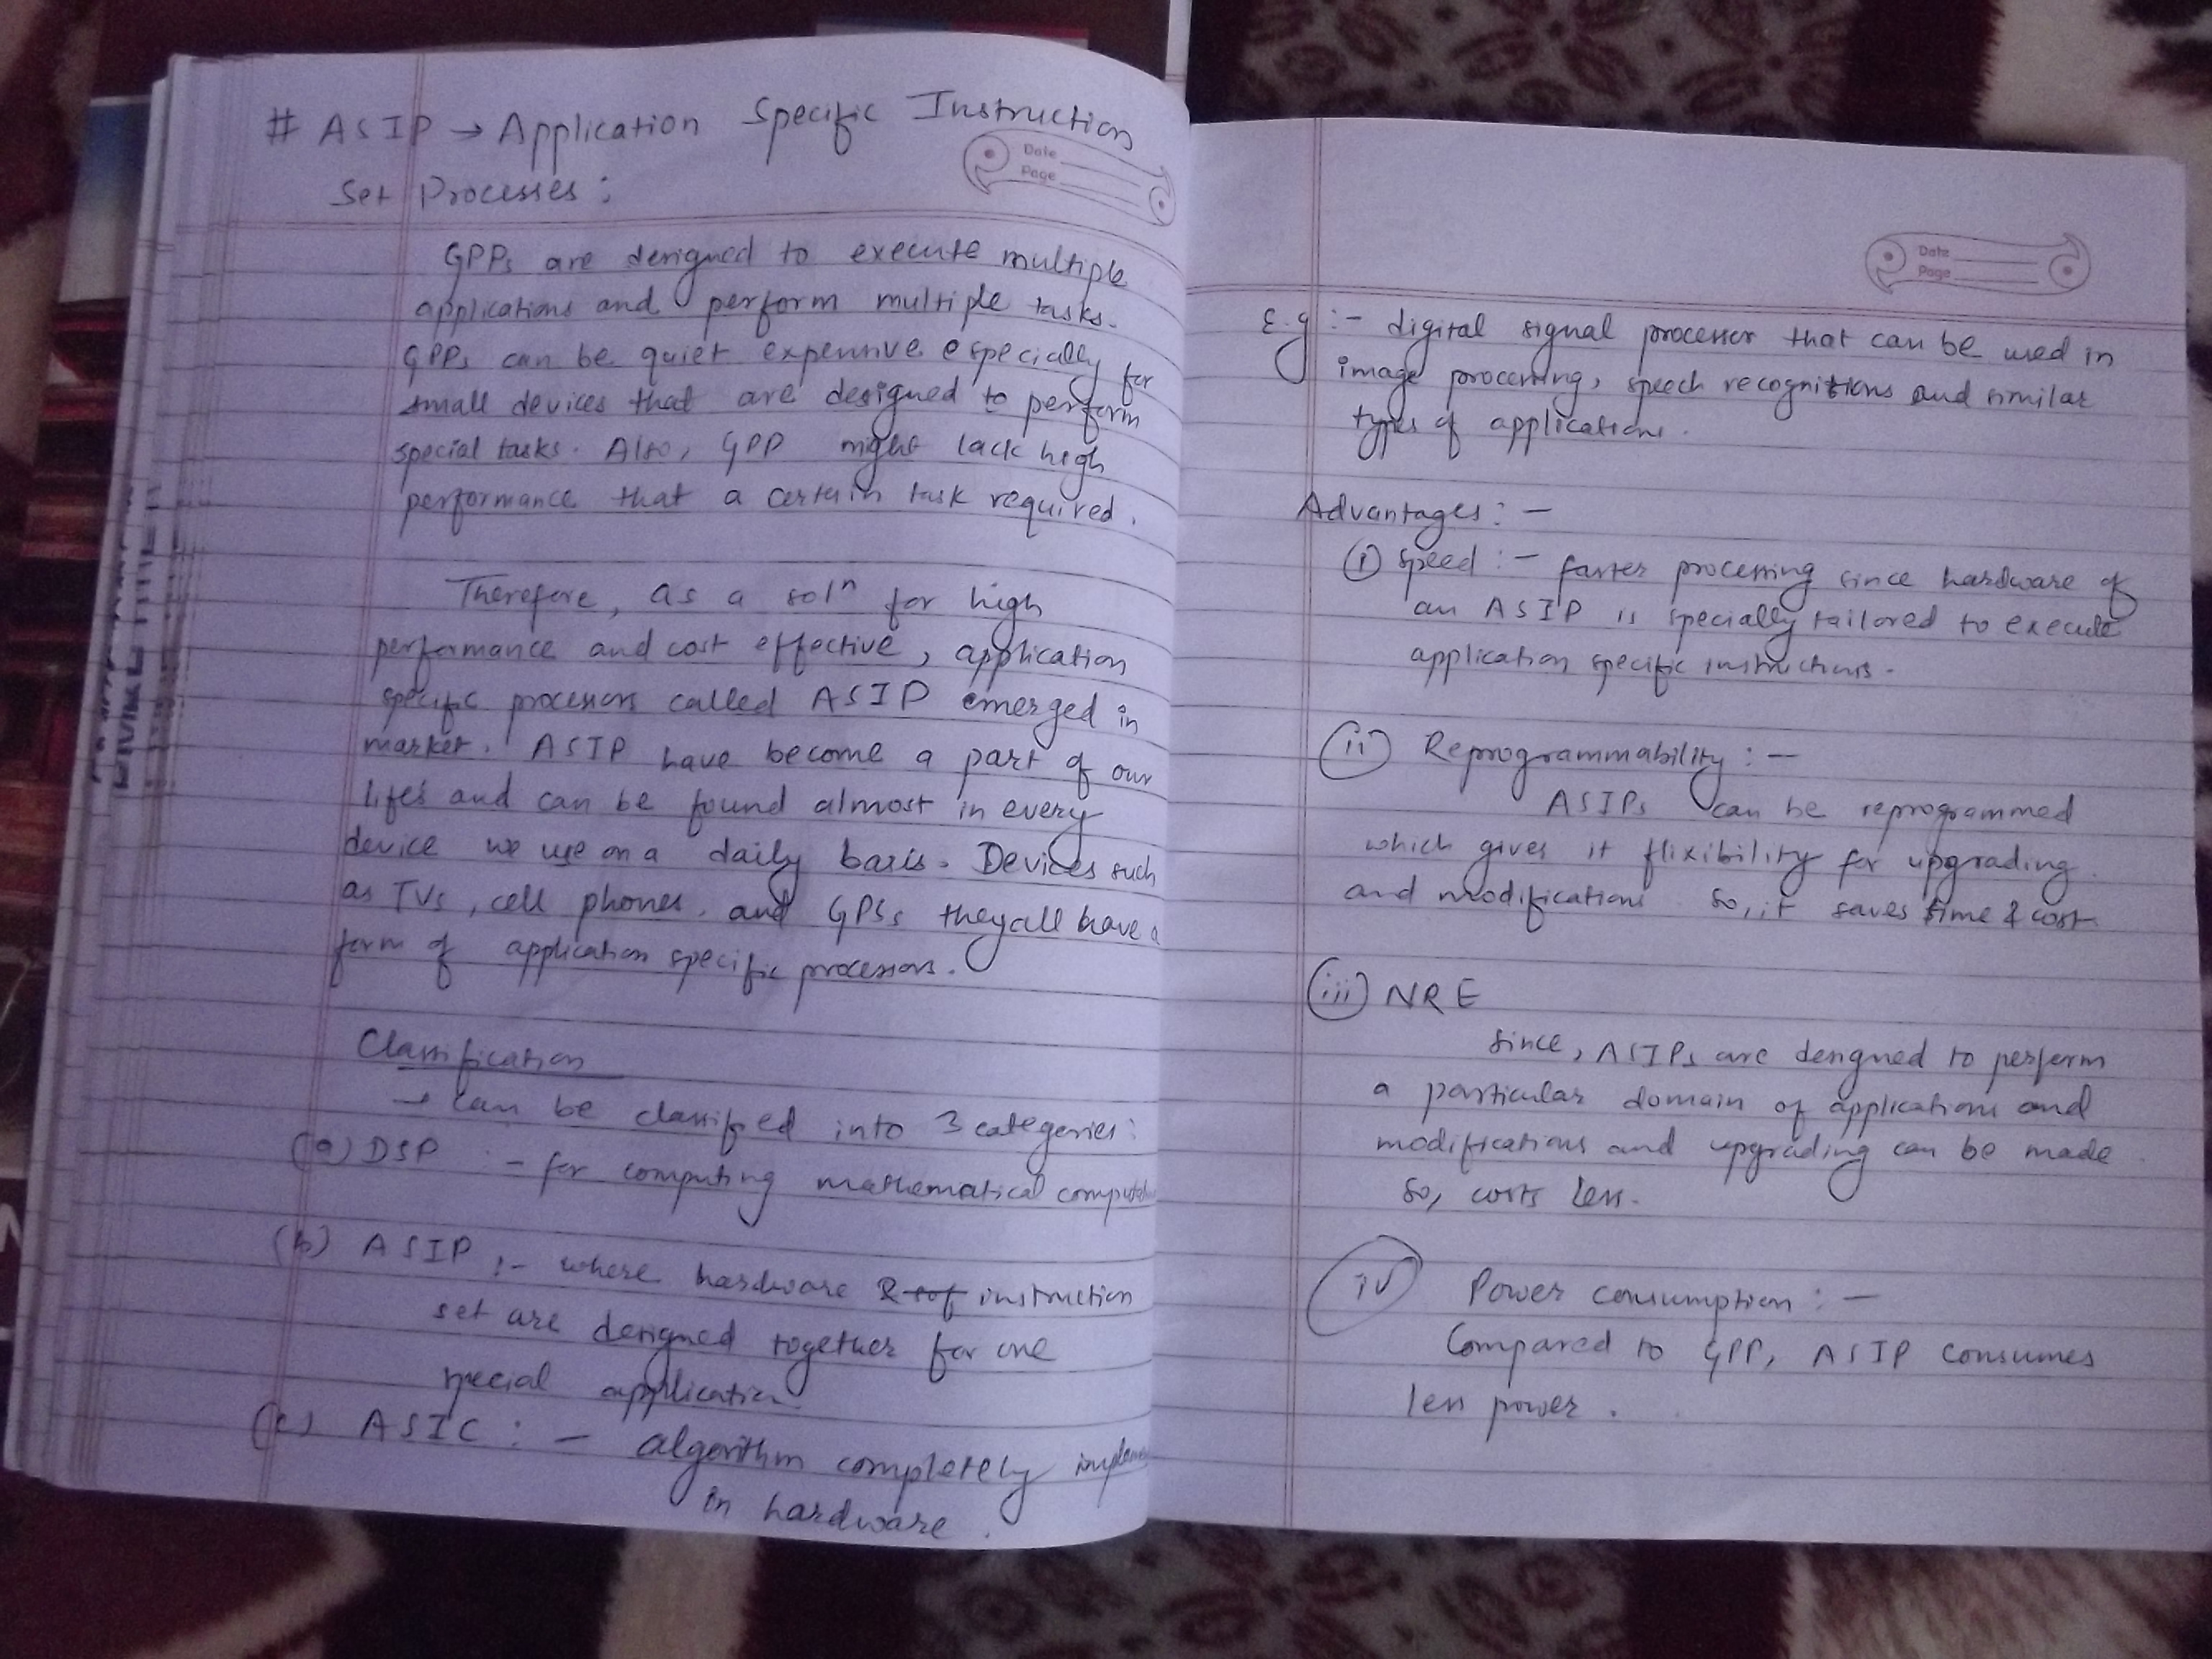 # ASIP → Application Specific Instruction
Set Processes :
Date
Page
GPPs are designed to execute multiple
applications and perform multiple tasks.
GPPs can be quiet expensive especially for
small devices that are designed to perform
special tasks. Also, GPP might lack high
performance that a certain task required.
Therefore, as a solⁿ for high
performance and cost effective, application
specific processors called ASIP emerged in
market. ASIP have become a part of our
lifes and can be found almost in every
device we use on a daily basis. Devices such
as TVs, cell phones, and GPSs they all have a
form of application specific processors.
Classification
→ can be classified into 3 categories:
(a) DSP :- for computing mathematical
(b) ASIP :- where hardware & instruction
set are designed together for one
special application
(c) ASIC :- algorithm completely
in hardware.
Date
Page
E.g :- digital signal processor that can be used in
image processing, speech recognitions and similar
types of applications.
Advantages :-
(i) speed :- faster processing since hardware of
an ASIP is specially tailored to execute
application specific instructions.
(ii) Reprogrammability :-
ASIPs can be reprogrammed
which gives it flixibility for upgrading
and modifications. So, it saves time & cost
(iii) NRE
since, ASIPs are designed to perform
a particular domain of applications and
modifications and upgrading can be made
so, costs less.
(iv) Power consumption :-
Compared to GPP, ASIP consumes
less power.